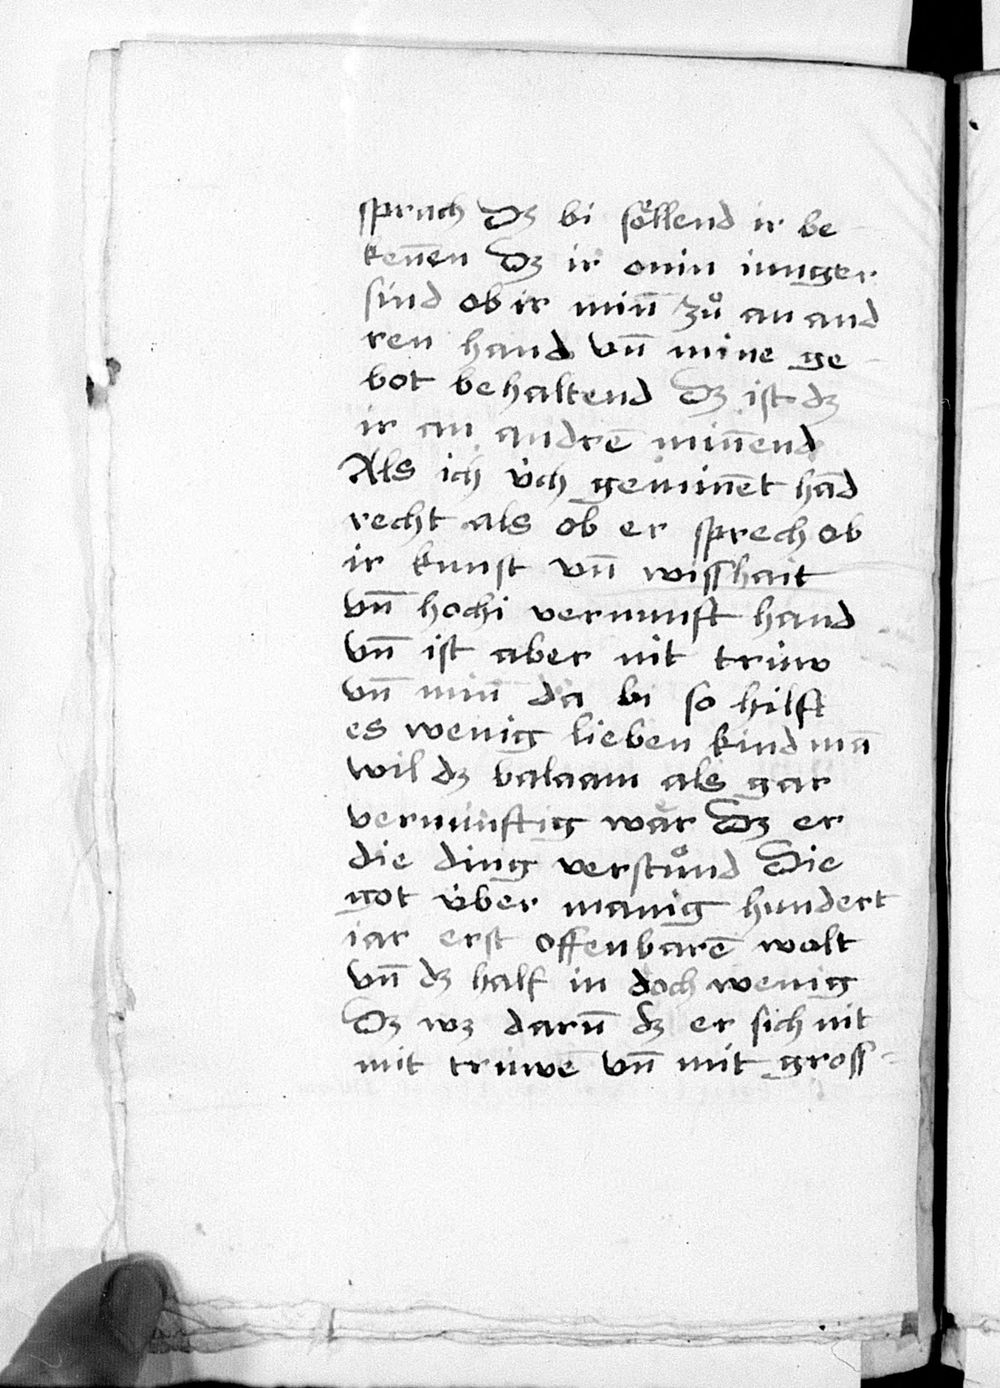 sprach Dꝫ bi soͤllend ir be
ken̄en Dꝫ ir minn iunger
sind ob ir min̄ zuͦ an and
ren hand vn̄ mine ge
bot behaltend Dꝫ ist dꝫ
ir an andrē min̄end
Als ich v̈ch gemin̄et hād
recht als ob er sprech ob
ir kunst vn̄ wisshait
vn̄ hochi vernunft hand
vn̄ ist aber nit trüw
vn̄ min̄ da bi so hilft
es wenig lieben kind mā
wil dꝫ balaam als gar
vernünftig wär Dꝫ er
die ding verstuͦnd Die
got v̈ber manig hundert
iar erst offenbarē wolt
vn̄ dꝫ half in doch wenig
Dꝫ wꝫ darūn dꝫ er sich nit
mit trüwē vn̄ mit gross-